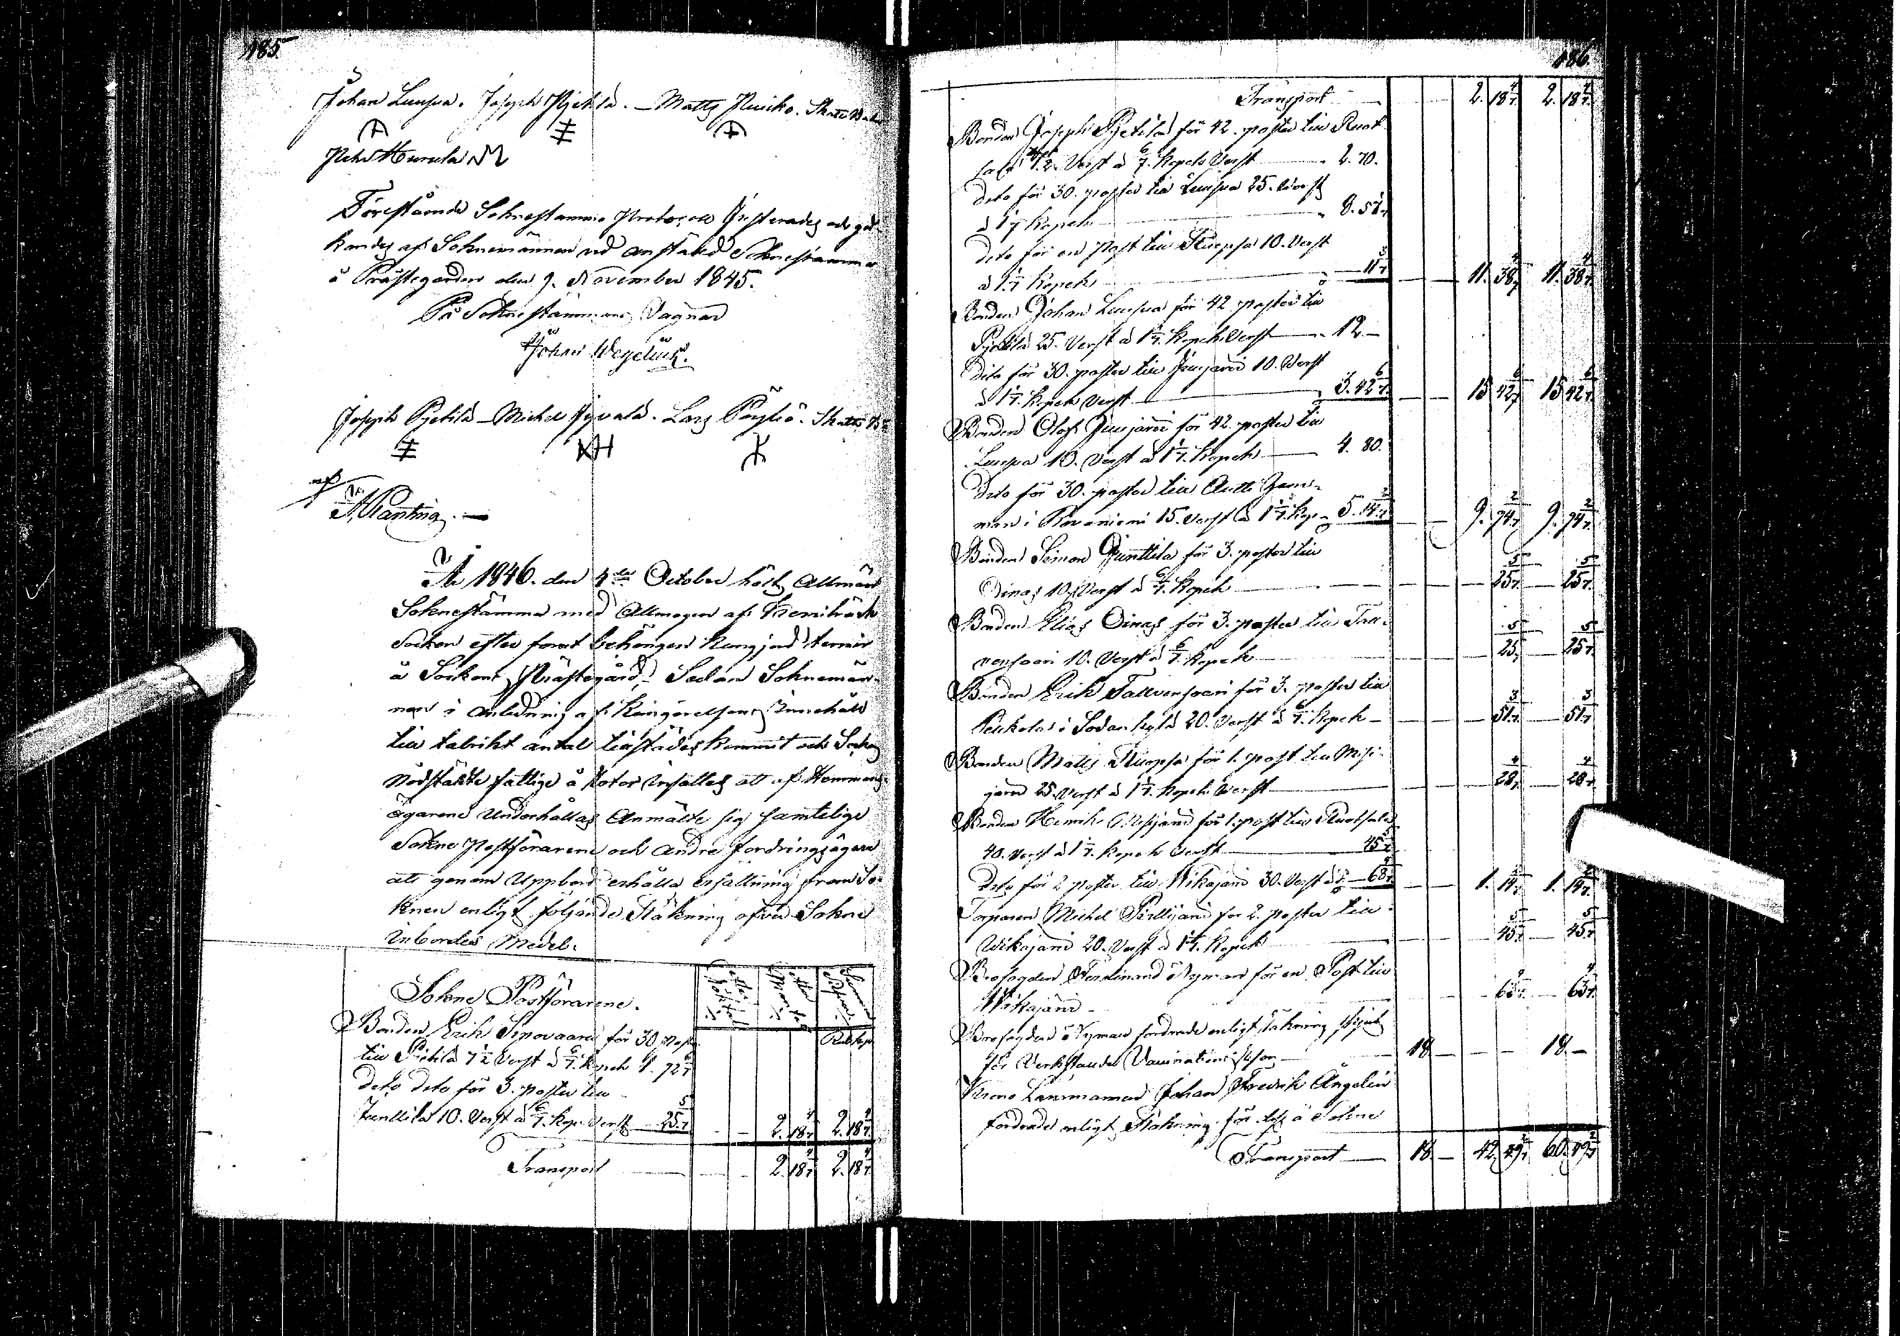 185.
Johan Luusua. Joseph Pyhtilä. Matts Kuiko. Skatte B
Petter Hurula
Förestående Sokne stämmo Protocoll Justerades och god-
kändes af Soknemännen vid anstäld Soknestämma
å Prästegården den 9. November 1845.
På Sokne stämmans Vägnar
Johan Wegelius.
Joseph Pyhtilä Michel Jyvälä. Lars Pöyliö. Skatte B
År 1846. den 4de October hölts Allmän
Soknestämma med Allmogen af Kemiträsk
Socken efter förut behörigen kungjord termin
å Sockens Prästegård, Sedan Soknemän-
nen i anledning af Kungörelsens Innehåll
till talrikt antal tillstädes kommit och Sockens
Nödstälte fattige å Rotor införtes att af Hemmans
ägarene Underhållas Anmälte sig samtelige
Sokne Postförarene och andre fordringsägare
att genom Uppbörd erhålla ersättning från So-
knen enligt följande Räkning öfver Sokne
Inbördes Medel.
Sokne Postförarene.
Bonden Erik Sipovaara för 30 post
till Pyhtilä 7½ Verst à 6/7. Kopek 1. 92 6/7
dito dito för 3. poster till
Junttila 10. Verst à 6/7. Kop. Verst 25 5/7 2. 18 4/7 2. 18 4/7
Transport 2. 18 4/7 2. 18 4/7
186.
Transport 2. 18 4/7 2. 18 4/7
Bonden Joseph Pyhtilä för 42. poster till Ruot
sala 7½. Verst à 6/7. Kopek Verst 2. 70.
dito för 30. poster till Luusua 25. Verst
à 1 1/7 Kopek 8. 57 1/7
dito för en Post till Ruopsa 10. Verst
à 1 1/7 Kopek 11 3/7 11. 38 4/7 11. 38 4/7
Bonden Johan Luusua för 42 poster till
Pyhtilä 25. Verst à 1 1/7. Kopek Verst 12.
dito för 30. poster till Juujärvi 10. Verst
à 1 1/7. Kopek Verst 3. 42 6/7 15 42 6/7 15 42 6/7
Bonden Olof Juujärvi för 42. poster till
Luusua 10. Verst à 1 1/7. Kopek 4. 80.
dito för 30. poster till Autti Jem-
man i Rovaniemi 15. Verst à 1 1/7. Kop. 5. 14 2/7 9. 94 2/7 9. 94 2/7
Bonden Simon Junttila för 3. poster till
Oinas 10 Verst à 6/7. Kopek 25 5/7 25 5/7
Bonden Elias Oinas för 3. poster till Tall-
vensaari 10. Verst à 6/7. Kopek 25 5/7 25 5/7
Bonden Erik Tallvensaari för 3. poster till
i Sodankylä 20. Verst à 6/7. Kopek 51 3/7 51 3/7
Bonden Matts Ruopsa för 1. post till Misi
järvi 25. Verst à 1 1/7. Kopek Verst 28 4/7 28 4/7
Bonden Henrik Misijärvi för 1. post till Ruotsala
40. Verst à 1 1/7. Kopek Verst 45 5/7
dito för 2 poster till Wikajärvi 30. Verst 68 4/7 1. 14 2/7 1. 14 2/7
Torparen Michel Pirttijärvi för 2. poster till
Wikajärvi 20. Verst à 1 1/7. Kopek 45 5/7 45 5/7
Brofogden Ferdinand Nyman för en Post till
Wikajärvi
Brofogden Nyman fordrade enligt räkning
för Verkstälde Vaccinations 18 18
Krono Länsmannen Johan Fredrik Ångelin
fordrade enligt Räkning för å Sokne
Transport 18 42. 49 2/7 60. 49 2/7